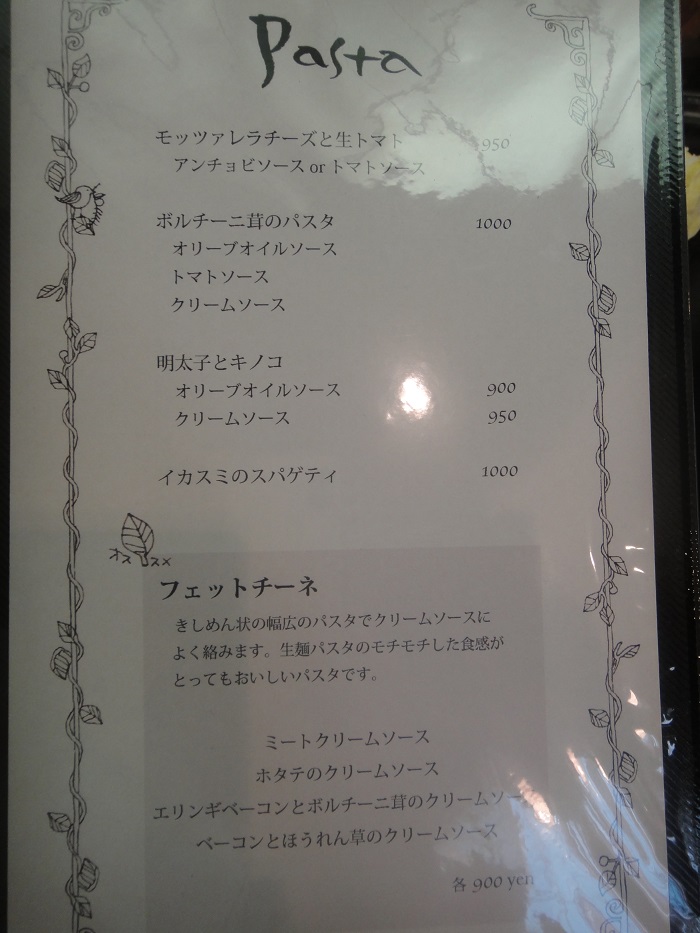 Pasta
モッツァレラチーズと生トマト 950
アンチョビソース or トマトソース
ボルチーニ茸のパスタ 1000
オリーブオイルソース
トマトソース
クリームソース
明太子とキノコ
オリーブオイルソース 900
クリームソース 950
イカスミのスパゲティ 1000
オススメ
フェットチーネ
きしめん状の幅広のパスタでクリームソースに
よく絡みます。生麺パスタのモチモチした食感が
とってもおいしいパスタです。
ミートクリームソース
ホタテのクリームソース
エリンギベーコンとボルチーニ茸のクリームソース
ベーコンとほうれん草のクリームソース
各 900 yen